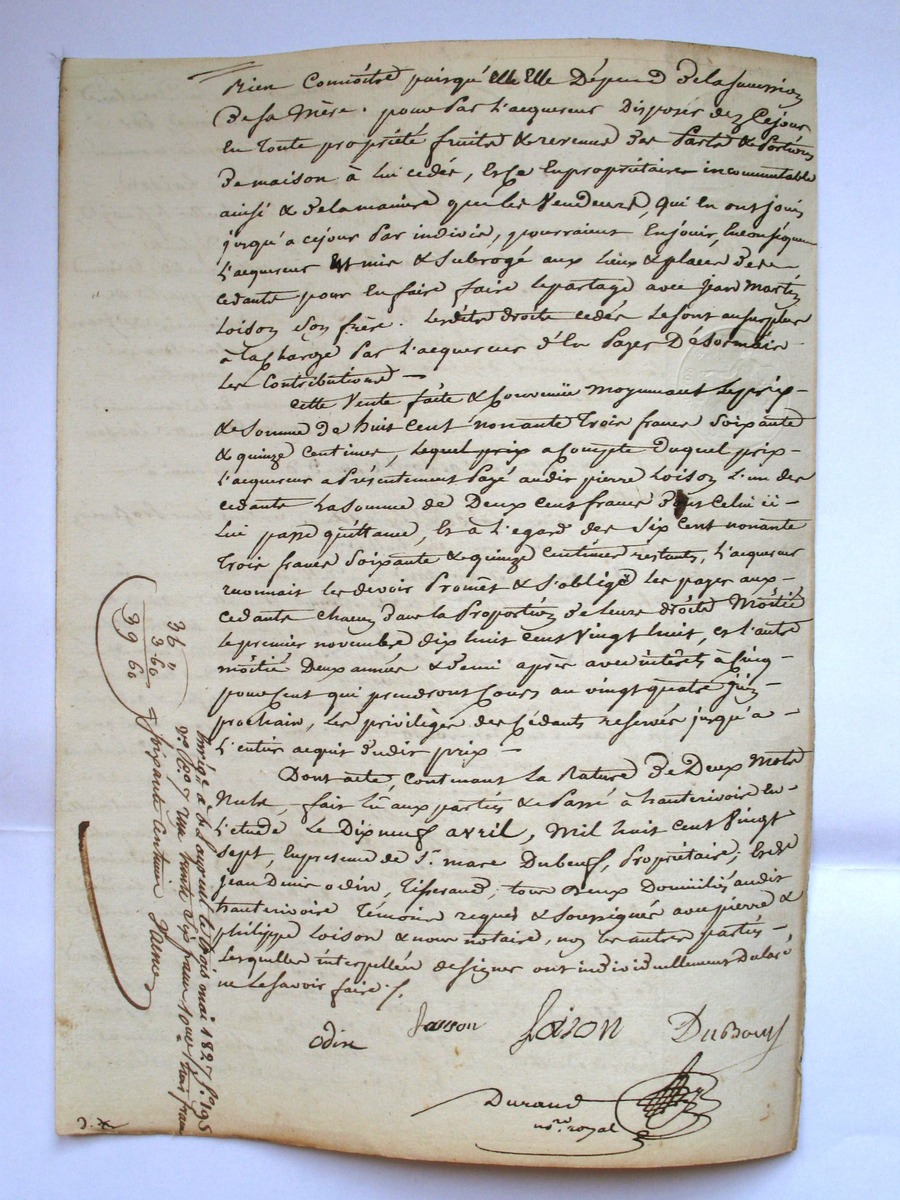 Rien Connoitre puisqu'elle Elle Dépend de la succession
De sa Mère. pour par L'acquereur Disposer dez Cejour
En Toute propriété fruits & revenus des Parts & Portions
De maison à Lui cédés, Et se En propriétaire incommutable
ainsi & de la maniere que les Vendeurs, qui En ont joui
jusqu'a cejour Par indivis, pourraient Enjouir, En conséquence
L'acquereur Est mis & subrogé aux Lieux & places des
cedants pour En faire faire le partage avec jean Martin
Loison Son frère. Lesdits droits cédés Le sont au surplus
à la charge Par L'acquereur d'En Payer Désormais
Les Contributions —
Cette Vente faite & Convenüe moyennant Le prix
& Somme De huit Cent nonante Trois francs Soixante
& quinze Centimes, Lequel prix a Compte Duquel prix
L'acquereur a Présentement Payé audit pierre Loison L'un des
cedants La Somme de Deux cent francs Dont Celui ci
Lui passe quittance, Et à L'egard des Six Cent nonante
Trois francs Soixante & quinze Centimes restants, L'acquereur
reconnait les devoir Promet & S'oblige les payer aux
cedants chacun Dans la Proportion de Leurs droits Moitié
Le premier novembre Dix huit cent Vingt huit, et L'autre
moitié Deux années & demi après avec intérêts à Cinq
pour Cent qui prendront Cours au vingt quatre juin
prochain, Les privilèges des Cédants reservés jusqu'a
L'entier acquit dudit prix —
Dont acte, Contenant La Rature de Deux Mots
Nuls, fait Lû aux parties & Passé à hauterivoire En
L'etude Le Dix neuf avril, Mil huit Cent Vingt
Sept, En presence de Sr. marc Dubeuf, Propriétaire, Et de
Jean Denis odin, Tisserand, tous Deux Domiciliés audit
hauterivoire Témoins requis & Soussignés avec pierre &
philippe Loison & nous notaire, non les autres parties
Lesquelles interpellées de signer ont individuellement Declaré
ne Le savoir faire ./.
odin
Loison
Loison
DuBoeuf
Durand
nore. royal
Enrégé. à St. Laurent le trois mai 1827 fo. 195
reçu trente six francs 10me. trois francs
Soixante Centimes
36 "
3 60
39 60